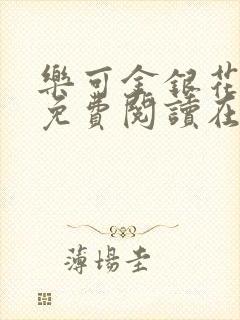 樂可金銀花
免費閱讀在
薄場圭